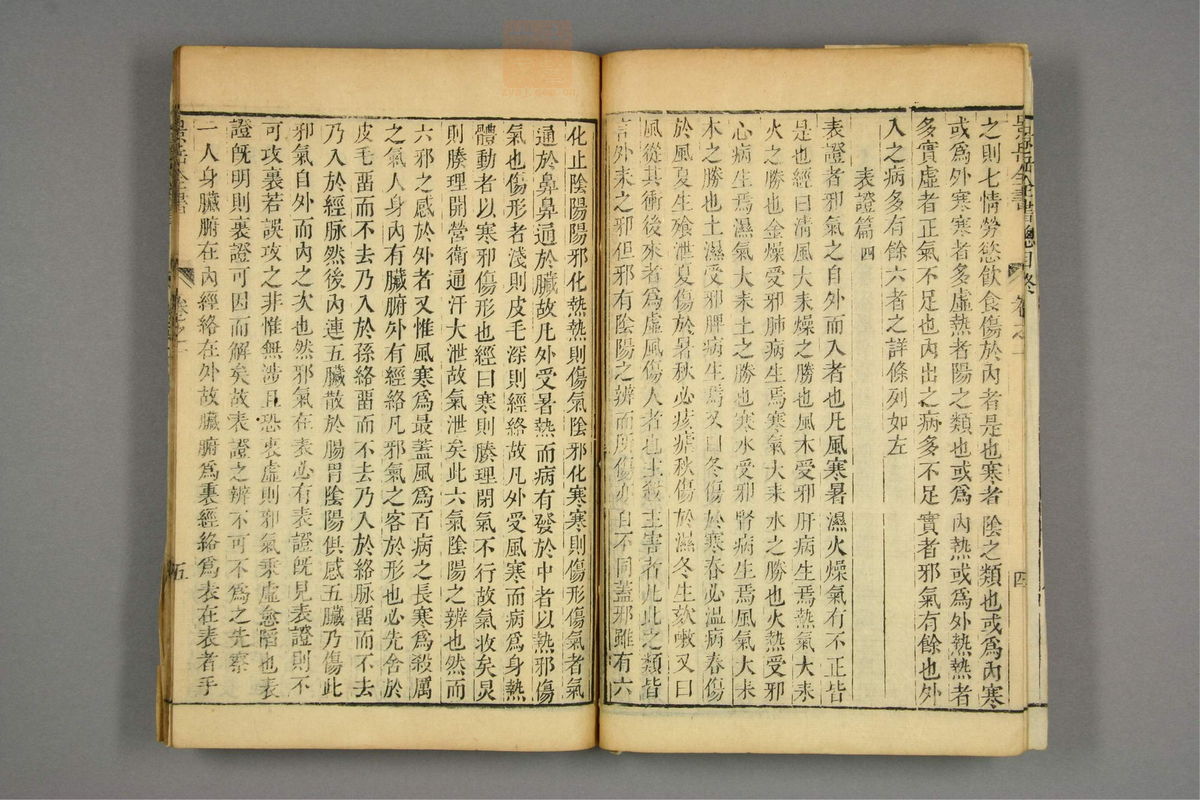 之則七情勞慾飲食傷於內者是也寒者陰之類也或爲內寒
或爲外寒寒者多虛熱者陽之類也或爲內熱或爲外熱熱者
多實虛者正氣不足也內出之病多不足實者邪氣有餘也外
入之病多有餘六者之詳條列如左
表證篇 四
表證者邪氣之自外而入者也凡風寒暑濕火燥氣有不正皆
是也經曰清風大來燥之勝也風木受邪肝病生焉熱氣大來
火之勝也金燥受邪肺病生焉寒氣大來水之勝也火熱受邪
心病生焉濕氣大來土之勝也寒水受邪腎病生焉風氣大來
木之勝也土濕受邪脾病生焉又曰冬傷於寒春必溫病春傷
於風夏生飱泄夏傷於暑秋必痎瘧秋傷於濕冬生欬嗽又曰
風從其衝後來者爲虛風傷人者也主殺主害者此此之類皆
言外來之邪但邪有陰陽之辨而所傷亦自不同蓋邪雖有六
化止陰陽陽邪化熱熱則傷氣陰邪化寒寒則傷形傷氣者氣
通於鼻鼻通於臟故凡外受暑熱而病有發於中者以熱邪傷
氣也傷形者淺則皮毛深則經絡故凡外受風寒而病爲身熱
體動者以寒邪傷形也經曰寒則腠理閉氣不行故氣收矣炅
則腠理開營衛通汗大泄故氣泄矣此六氣陰陽之辨也然而
六邪之感於外者又惟風寒爲最蓋風爲百病之長寒爲殺厲
之氣人身內有臟腑外有經絡凡邪氣之客於形也必先舍於
皮毛畱而不去乃入於孫絡畱而不去乃入於絡脉畱而不去
乃入於經脉然後內連五臟散於腸胃陰陽俱感五臟乃傷此
邪氣自外而內之次也然邪氣在表必有表證旣見表證則不
可攻裏若誤攻之非惟無涉且恐裏虛則邪氣乘虛愈陷也表
證旣明則裏證可因而解矣故表證之辨不可不爲之先察
一人身臟腑在內經絡在外故臟腑爲裏經絡爲表在表者手
景岳全書
卷之一
五
景岳全書總目終
卷之一
四